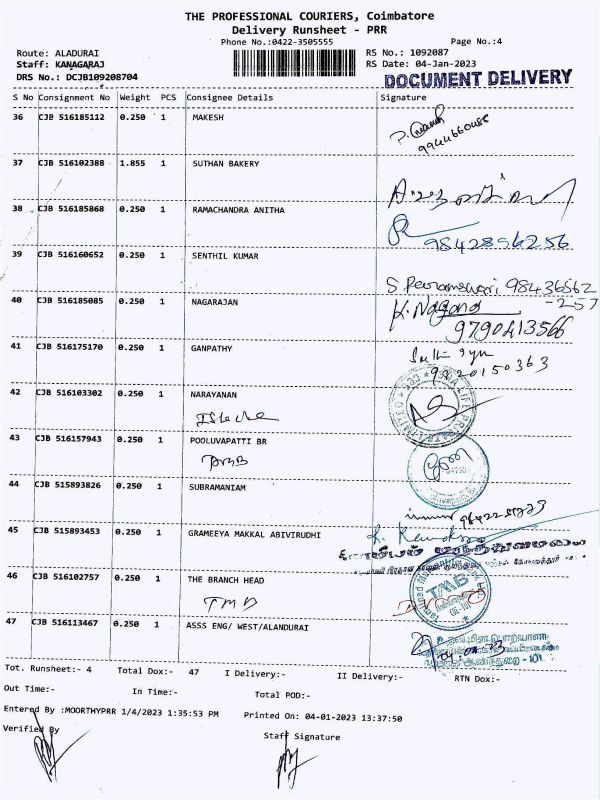 THE PROFESSIONAL COURIERS, Coimbatore
Delivery Runsheet - PRR
Phone No.:0422-3505555 Page No.:4
Route: ALADURAI RS No.: 1092087
Staff: KANAGARAJ RS Date: 04-Jan-2023
DRS No.: DCJB109208704 DOCUMENT DELIVERY
S No Consignment No Weight PCS Consignee Details Signature
36 CJB 516185112 0.250 1 MAKESH
9944660488
37 CJB 516102388 1.855 1 SUTHAN BAKERY
38 CJB 516185868 0.250 1 RAMACHANDRA ANITHA
9842856256
39 CJB 516160652 0.250 1 SENTHIL KUMAR
98436562
-257
40 CJB 516185085 0.250 1 NAGARAJAN
K. Nagaraj
9790413566
41 CJB 516175170 0.250 1 GANPATHY
9820150363
42 CJB 516103302 0.250 1 NARAYANAN
43 CJB 516157943 0.250 1 POOLUVAPATTI BR
44 CJB 515893826 0.250 1 SUBRAMANIAM
45 CJB 515893453 0.250 1 GRAMEEYA MAKKAL ABIVIRUDHI
46 CJB 516102757 0.250 1 THE BRANCH HEAD
TMB
TMB
47 CJB 516113467 0.250 1 ASSS ENG/ WEST/ALANDURAI
Tot. Runsheet:- 4 Total Dox:- 47 I Delivery:- II Delivery:- RTN Dox:-
Out Time:- In Time:- Total POD:-
Entered By :MOORTHYPRR 1/4/2023 1:35:53 PM Printed On: 04-01-2023 13:37:50
Verified By Staff Signature